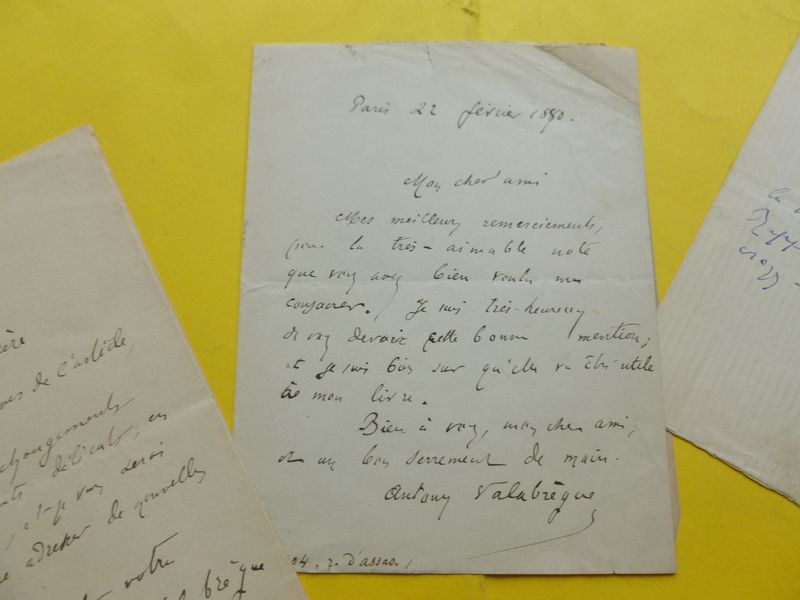 Paris 22 février 1880.
Mon cher ami
Mes meilleurs remerciements,
pour la très-aimable note
que vous avez bien voulu me
consacrer. Je suis très-heureux
de vous devoir cette bonne mention;
et je suis bien sûr qu'elle va être utile
à mon livre.
Bien à vous, mon cher ami,
et un bon serrement de main.
Antony Valabrègue
54. r. d'assas.
ère
de l'article,
changements
délicats, en
, et je vous serais
adresser de nouvelles
votre
brègue
la